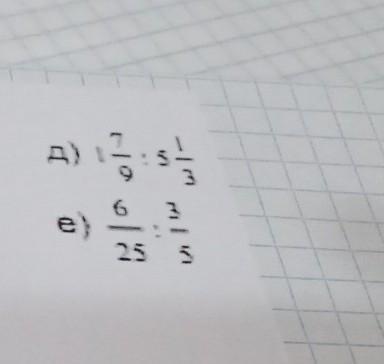 д) 1 7/9 : 5 1/3
е) 6/25 : 3/5